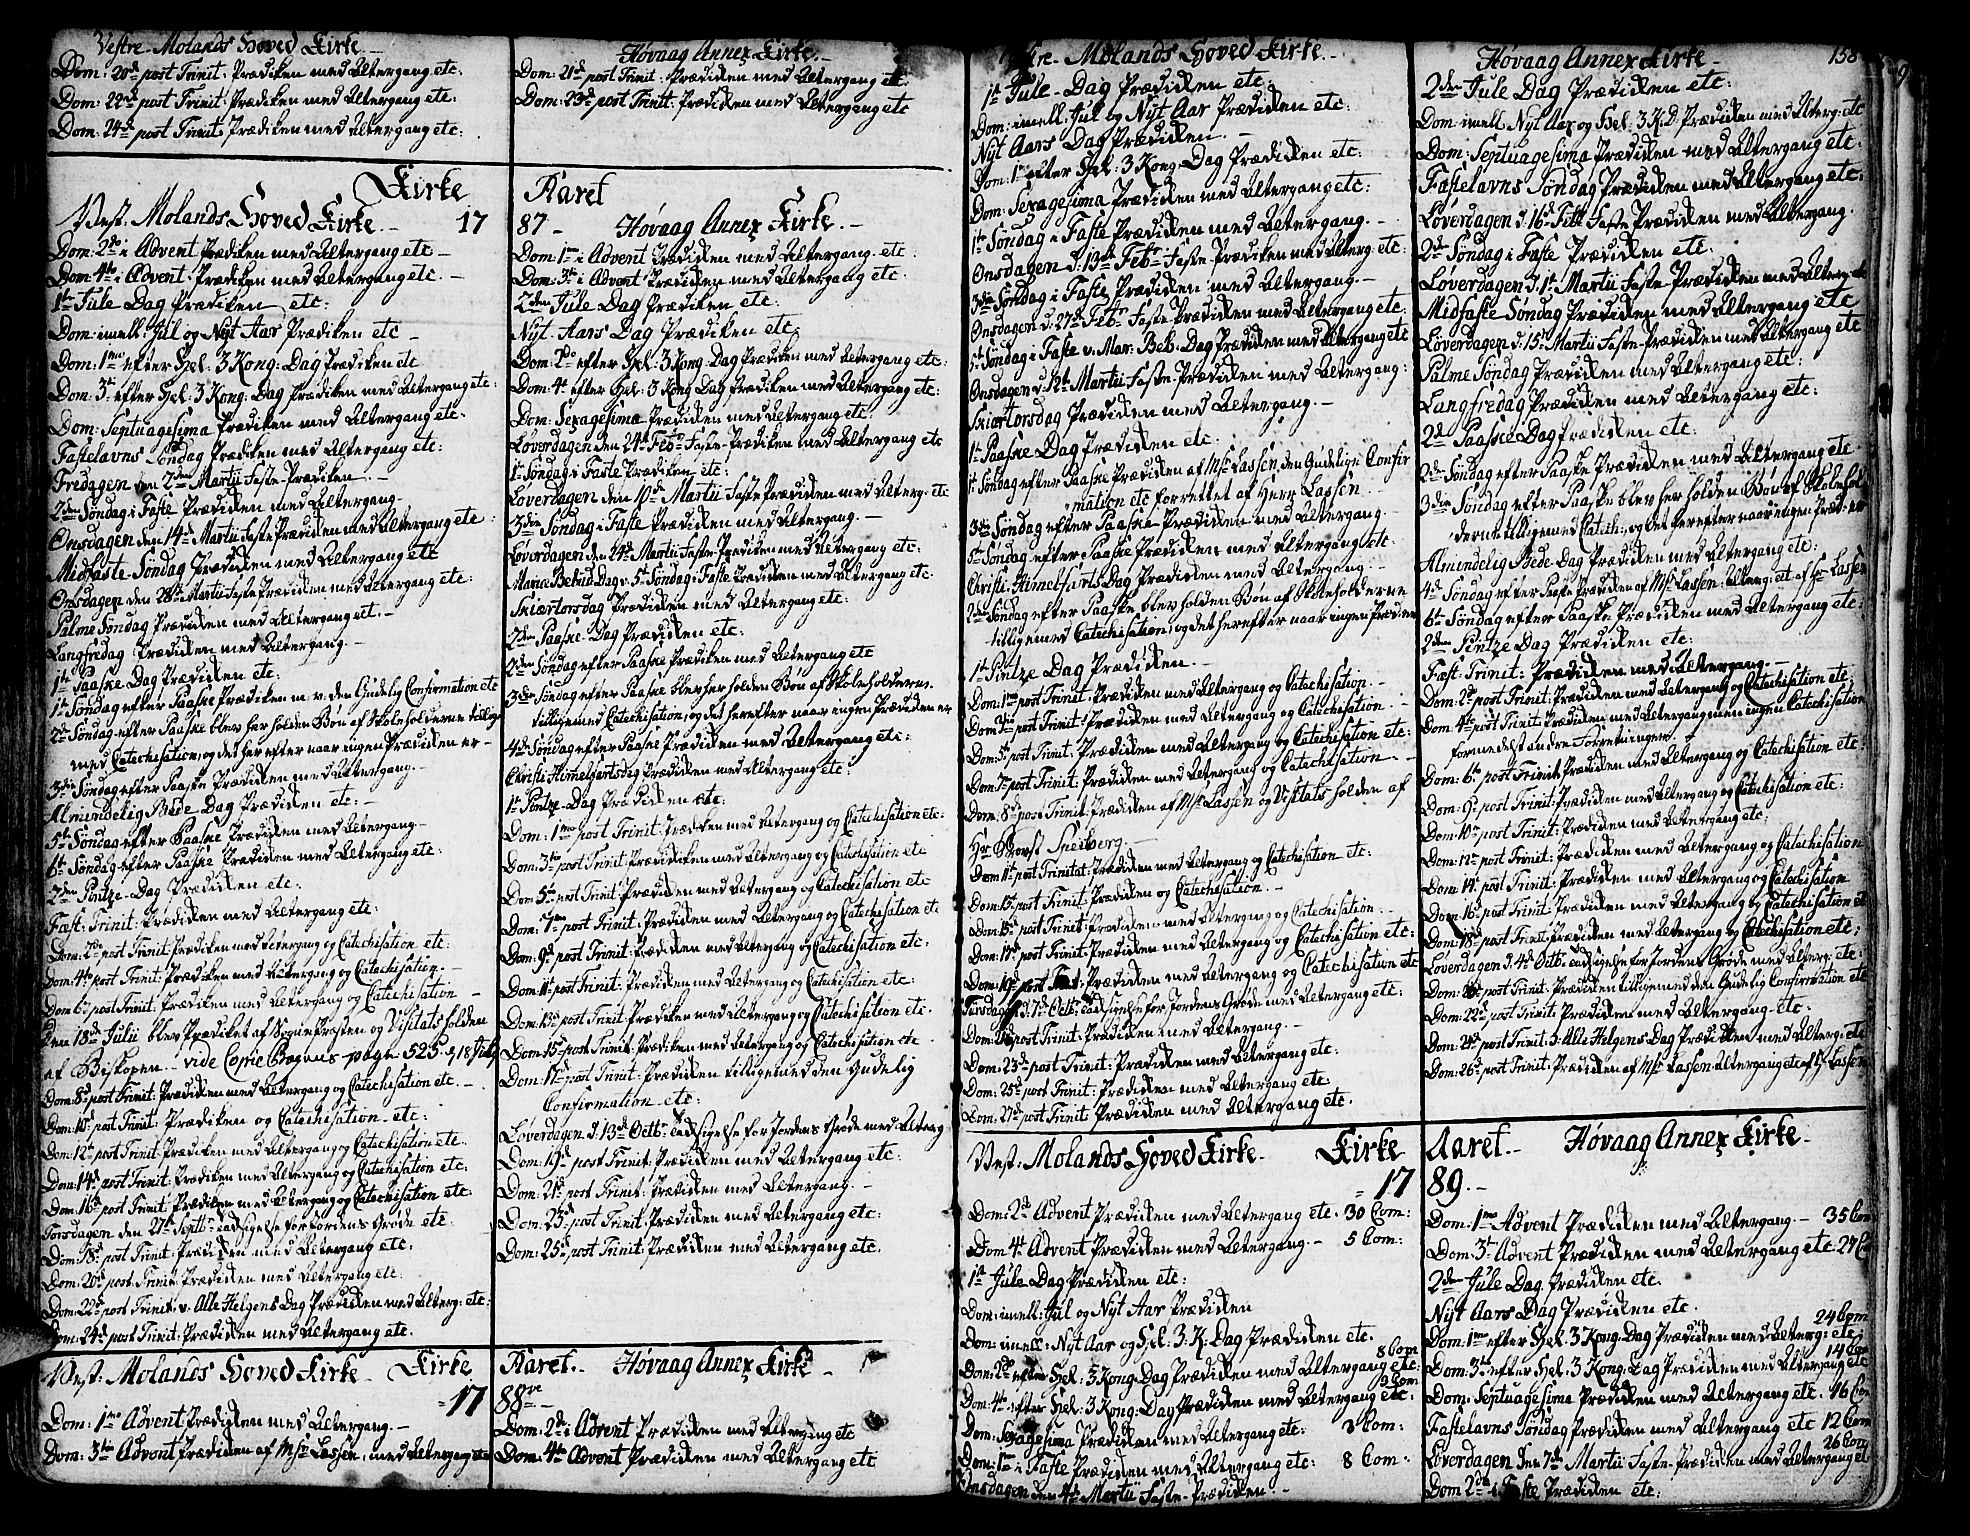 Vestre-Molands Hoved Kirke.
Dom: 20de post Trinit: Prædiken med Altergang etc.
Dom: 22de post Trinit: Prædiken med Altergang etc:
Dom: 24de post Trinit: Prædiken med Altergang etc:
Høvaag Annex Kirke.
Dom: 21de post Trinit: Prædiken med Altergang etc
Dom: 23de post Trinit: Prædiken med Altergang etc
Kirke Aaret
Vest: Molands Hoved Kirke. 17
Dom: 2de i Advent Prædiken med Altergang etc
Dom: 4te i Advent Prædiken med Altergang etc
1te Jule Dag Prædiken etc:
Dom: imell: Jul og Nyt Aar Prædiken etc
Dom: 1me efter Hel: 3 Kong: Dag Prædiken etc
Dom: 3te efter Hel: 3 Kong: Dag Prædiken med Altergang etc:
Dom: Septuagesima Prædiken med Altergang etc:
Fastelavns Søndag Prædiken med Altergang etc:
Fredagen den 2den Martii Faste-Prædiken
2den Søndag i Faste Prædiken med Altergang
Onsdagen den 14de Martii Faste Prædiken med Altergang etc
Midfaste-Søndag Prædiken med Altergang etc
Onsdagen den 28de Martii Faste Prædiken med Altergang etc:
Palme Søndag Prædiken med Altergang et.
Langfredag Prædiken med Altergang.
1te Paaske Dag Prædiken etc:
1te Søndag efter Paaske Prædiken m. v. den Gudelig Confirmation etc
2de Søndag efter Paaske blev her holden Bøn af Skoleholderne tillige
med Catechisation, og det her efter naar ingen Prædiken er
3die Søndag efter Paaske Prædiken med Altergang.
Almindelig Bede-Dag Prædiken etc:
5te Søndag efter Paaske Prædiken med Altergang
6te Søndag efter Paaske Prædiken med Altergang etc:
2den Pintze-Dag Prædiken etc:
Fest: Trinit: Prædiken med Altergang etc:
Dom: 2de post Trinit Prædiken med Altergang og Catechisation etc:
Dom: 4te post Trinit: Prædiken med Altergang og Catechisation.
Dom: 6te post Trinit: Prædiken med Altergang og Catechisation
Den 18de Julii blev Prædiket af SognePræsten og Visitats holden
af Biskopen. vide Copie Bogens page 525
Dom: 8de post Trinit: Prædiken med Altergang og Catechisation etc.
Dom: 10de post Trinit: Prædiken og Catechisation etc:
Dom: 12te post Trinit: Prædiken med Altergang og Catechisation etc.
Dom: 14de post Trinit: Prædiken med Altergang og Catechisation etc:
Dom: 16de post Trinit: Prædiken med Altergang og Catechisation etc:
Torsdagen den 27de Septbr: taksigelse for Jordens Grøde etc.
Dom: 18de post Trinit: Prædiken med Altergang etc:
Dom: 20de post Trinit: Prædiken med Altergang etc:
Dom: 22de post Trinit: v. Alle Helgens Dag Prædiken med Alterg: etc:
Dom: 24de post Trinit: Prædiken med Altergang etc.
87 Høvaag Annex Kirke.
Dom: 1me i Advent Prædiken med Altergang etc:
Dom: 3te i Advent Prædiken med Altergang etc:
2den Jule Dag Prædiken etc:
Nyt Aars Dag Prædiken etc,
Dom: 2de efter Hel: 3 Kong: Dag Prædiken med Altergang etc:
Dom: 4te efter Hel: 3 Kong Dag Prædiken med Altergang etc:
Dom: Sexagesima Prædiken med Altergang etc:
Løverdagen den 24de Febr: Faste-Prædiken med Altergang etc
1te Søndag i Faste Prædiken etc:
Løverdagen den 10de Martii Faste Prædiken med Alterg: etc
3die Søndag i Faste Prædiken med Altergang.
Løverdagen den 24de Martii Faste-Prædiken med Altergang etc:
Mariæ Bebud: Dag v. 5te Søndag i Faste Prædiken med Altergang etc:
Skiærtorsdag Prædiken med Altergang etc:
2den Paaske-Dag Prædiken etc:
2den Søndag efter Paaske Prædiken med Altergang etc
3die Søndag efter Paaske blev her holden Bøn af Skoleholderne
tillige med Catechisation, og det herefter naar ingen Prædiken er
4de Søndag efter Paaske Prædiken med Altergang etc:
Christi Himelfartsdag Prædiken med Altergang etc:
1te Pintze-Dag Prædiken etc:
Dom: 1me post Trinit: Prædiken med Altergang og Catechisation etc:
Dom: 3die post Trinit: Prædiken med Altergang og Catechisation etc
Dom: 5te post Trinit: Prædiken med Altergang og Catechisation etc
Dom: 7me post Trinit: Prædiken med Altergang og Catechisation etc
Dom: 9de post Trinit: Prædiken med Altergang og Catechisation etc:
Dom: 11te post Trinit: Prædiken med Altergang og Catechisation etc:
Dom: 13de post Trinit: Prædiken med Altergang og Catechisation etc.
Dom: 15de post Trinit: Prædiken med Altergang og Catechisation etc
Dom: 17de post Trinit: Prædiken tilligemed den Gudelig
Confirmation etc:
Løverdagen d. 13de Octbr: taksigelse for Jordens Grøde med Alterg
Dom: 19de post Trinit: Prædiken med Altergang etc:
Dom: 21de post Trinit: Prædiken med Altergang.
Dom: 23de post Trinit: Prædiken med Altergang etc:
Dom: 25de post Trinit: Prædiken med Altergang etc.
Vest: Molands Hoved Kirke Kirke Aaret Høvaag Annex Kirke
17 88
Dom: 1me Advent Prædiken med Altergang.
Dom: 3die Advent Prædiken af Msr Lassen, med Altergang etc
Dom: 2de Advent Prædiken med Altergang etc
Dom: 4te Advent Prædiken med Altergang etc
Vestre-Molands Hoved Kirke.
1te Jule-Dag Prædiken etc:
Dom: imell: Jul og Nyt Aar Prædiken etc:
Nyt Aars Dag Prædiken.
Dom: 1me efter Hel: 3 Kong: Dag Prædiken etc:
Dom: Sexagesima Prædiken med Altergang etc:
1te Søndag i Faste Prædiken med Altergang.
Onsdagen d. 13de Febr: Faste-Prædiken med Alterg: etc:
3die Søndag i Faste Prædiken med Altergang.
Onsdagen d. 27de Febr: Faste-Prædiken med Altergang etc:
5te Søndag i Faste v. Mar: Beb: Dag Prædiken med Altergang etc
Onsdagen d. 12te Martii Faste-Prædiken med Altergang:
Skiærtorsdag Prædiken med Altergang.
1te Paaske Dag Prædiken etc.
1te Søndag efter Paaske Prædiken af Msr Lassen, den Gudelige Confir
mation etc forrettet af Herr Lassen
3die Søndag efter Paaske Prædiken med Altergang.
5te Søndag efter Paaske Prædiken med Altergang etc:
Christi Himelfarts Dag Prædiken med Altergang:
2de Søndag efter Paaske blev holden Bøn af Skoleholderne
tilligemed Catechisation, og det herefter naar ingen Prædiken
1te Pintze Dag Prædiken.
Dom: 1me post Trinit: Prædiken med Altergang og Catechisation.
Dom: 3die post Trinit: Prædiken med Altergang og Catechisation.
Dom: 5te post Trinit: Prædiken med Altergang og Catechisation etc:
Dom: 7me post Trinit: Prædiken med Altergang og Catechisation
Dom: 8de post Trinit: Prædiken af Msr Lassen og Visitats holden af
Hr Provst
Dom: 11te post Trinitat: Prædiken med Altergang og Catechisation etc:
Dom: 13de post Trinit: Prædiken og Catechisation.
Dom: 15de post Trinit: Prædiken med Altergang og Catechisation.
Dom: 17de post Trinit: Prædiken med Altergang og Catechisation etc:
Dom: 19de post Trinit: Prædiken med Altergang og Catechisation etc
Torsdagen d. 2de Octbr: taksigelse for Jordens Grøde med Altergang etc:
Dom: post Trinit: Prædiken med Altergang.
Dom: 23de post Trinit: Prædiken med Altergang etc:
Dom: 25de post Trinit: Prædiken med Altergang etc
Dom: 27de post Trinit Prædiken med Altergang etc.
Høvaag Annex Kirke 158
2den Jule Dag Prædiken etc:
Dom: imell: Nyt Aar og Hel: 3 K: D Prædiken med Alterg: etc
Dom: Septuagesima Prædiken med Altergang etc:
Fastelavns Søndag Prædiken med Altergang etc:
Løverdagen d. 16de Febr Faste Prædiken med Altergang.
2de Søndag i Faste Prædiken etc:
Løverdagen d. 1te Martii Faste-Prædiken med Alterg: etc
Midfaste Søndag Prædiken med Altergang etc
Løverdagen d. 15de Martii Faste-Prædiken med Altergang etc
Palme Søndag Prædiken med Altergang etc:
Langfredag Prædiken med Altergang etc:
2de Paaske Dag Prædiken etc:
2de Søndag efter Paaske Prædiken med Altergang etc
3die Søndag efter Paaske blev her holden Bøn af Skolehol
derne tilligemed Catech: og det herefter naar ingen Præd: er
Almindelig Bede-Dag Prædiken med Altergang etc:
4de Søndag efter Paaske Prædiken af Msr Lassen: Alterg: et af Hr Lassen
6te Søndag efter Paaske Prædiken med Altergang etc:
2den Pintze Dag Prædiken etc:
Fest: Trinit: Prædiken med Altergang.
Dom: 2de post Trinit: Prædiken med Altergang og Catechisation etc:
Dom: 4te post Trinit: Prædiken med Altergang men ingen Catechisation
formedelst andre Forretninger.
Dom: 6te post Trinit: Prædiken med Altergang og Catechisation etc:
Dom: 9de post Trinit: Prædiken med Altergang og Catechisation etc:
Dom: 10de post Trinit: Prædiken med Altergang etc:
Dom: 12te post Trinit: Prædiken med Altergang og Catechisation
Dom: 14de post Trinit: Prædiken med Altergang og Catechisation
Dom: 16de post Trinit: Prædiken med Altergang og Catechisation et
Dom: 18de post Trinit: Prædiken med Altergang og Catechisation etc:
Løverdagen d. 4de Octb: taksigelse for Jordens Grøde med Alterg: etc:
Dom: 20de post Trinit: Prædiken tilligemed den Gudelig Confirmation etc
Dom: 22de post Trinit: Prædiken med Altergang etc:
Dom: 24de post Trinit: v. Alle Helgens Dag Prædiken med Alterg: etc
Dom: 26de post Trinit: Prædiken af Msr Lassen Altergang etc af Hr Lassen
Vest: Molands Hoved Kirke Kirke Aaret. Høvaag Annex Kirke
17 89.
Dom: 2de Advent Prædiken med Altergang etc. 30 Com:
Dom 4te Advent Prædiken med Altergang. 5 Com:
1te Jule Dag Prædiken etc:
Dom: imell: Jul og Nyt Aar Prædiken
Dom: imell: Nyt Aar og Hel: 3 K: Dag Prædiken etc.
8 Com
Dom: 2de efter Hel: 3 Kong: Dag Prædiken med Altergang etc:
9 Com
Dom: 4te efter Hel: 3 Kong: Dag Prædiken med Altergang etc:
Dom: Sexagesima Prædiken med Altergang etc: 3 Com:
Dom: 1me i Faste Prædiken med Altergang etc: 8 Com:
Onsdagen den 4de Martii Faste-Prædiken
Dom: 1me Advent Prædiken med Altergang 35 Com
Dom: 3te Advent Prædiken med Altergang etc. 27 C
2den Jule Dag Prædiken etc.
Nyt Aars Dag Prædiken etc.
24 Com
Dom: 1me efter Hel: 3 Kong: Dag Prædiken med Alterg: etc
14 Com
Dom: 3te efter Hel: 3 Kong: Dag Prædiken med Altergang etc
Dom: Septuagesima Prædiken med Altergang etc: 46 Com
Fastelavns Søndag Prædiken med Altergang etc 12 Com
26 Com
Løverdagen den 7de Martii Faste-Prædiken med Altergang et
Dom 2de i Faste Prædiken etc: